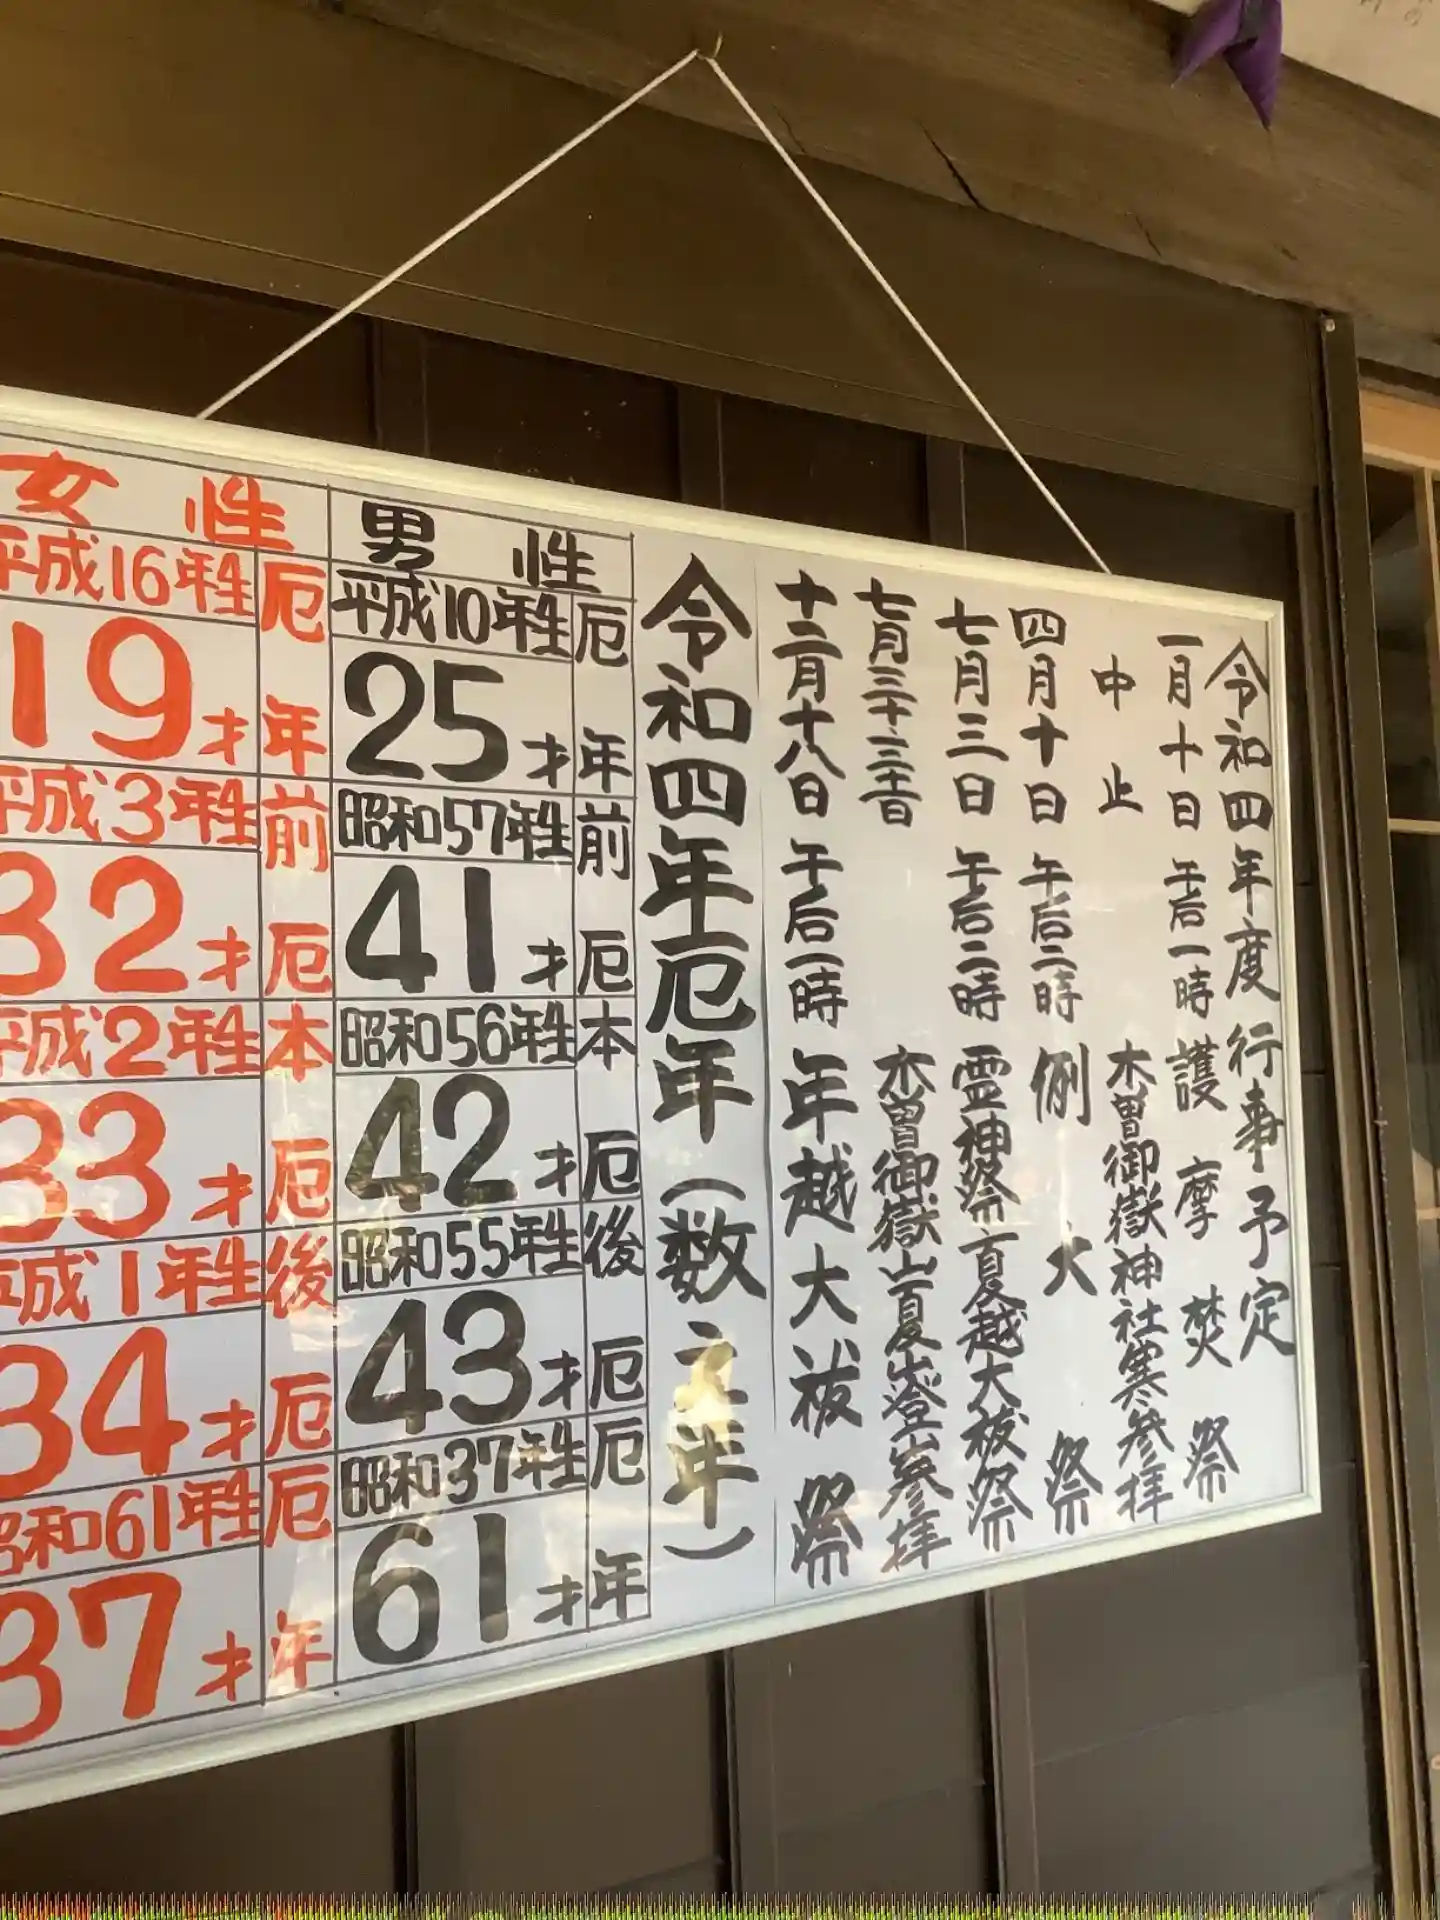 令和四年度行事予定
一月十日 午后一時 護摩焚祭
中止 木曽御嶽神社寒参拝
四月十日 午后二時 例大祭
七月三日 午后二時 霊神祭夏越大祓祭
七月三十・三十一日 木曽御嶽山夏山登山参拝
十二月十八日 午后一時 年越大祓祭
令和四年厄年(数え年)
男性
平成10年生 厄年
25才
昭和57年生 前厄
41才
昭和56年生 本厄
42才
昭和55年生 後厄
43才
昭和37年生 厄年
61才
女性
平成16年生 厄年
19才
平成3年生 前厄
32才
平成2年生 本厄
33才
平成1年生 後厄
34才
昭和61年生 厄年
37才